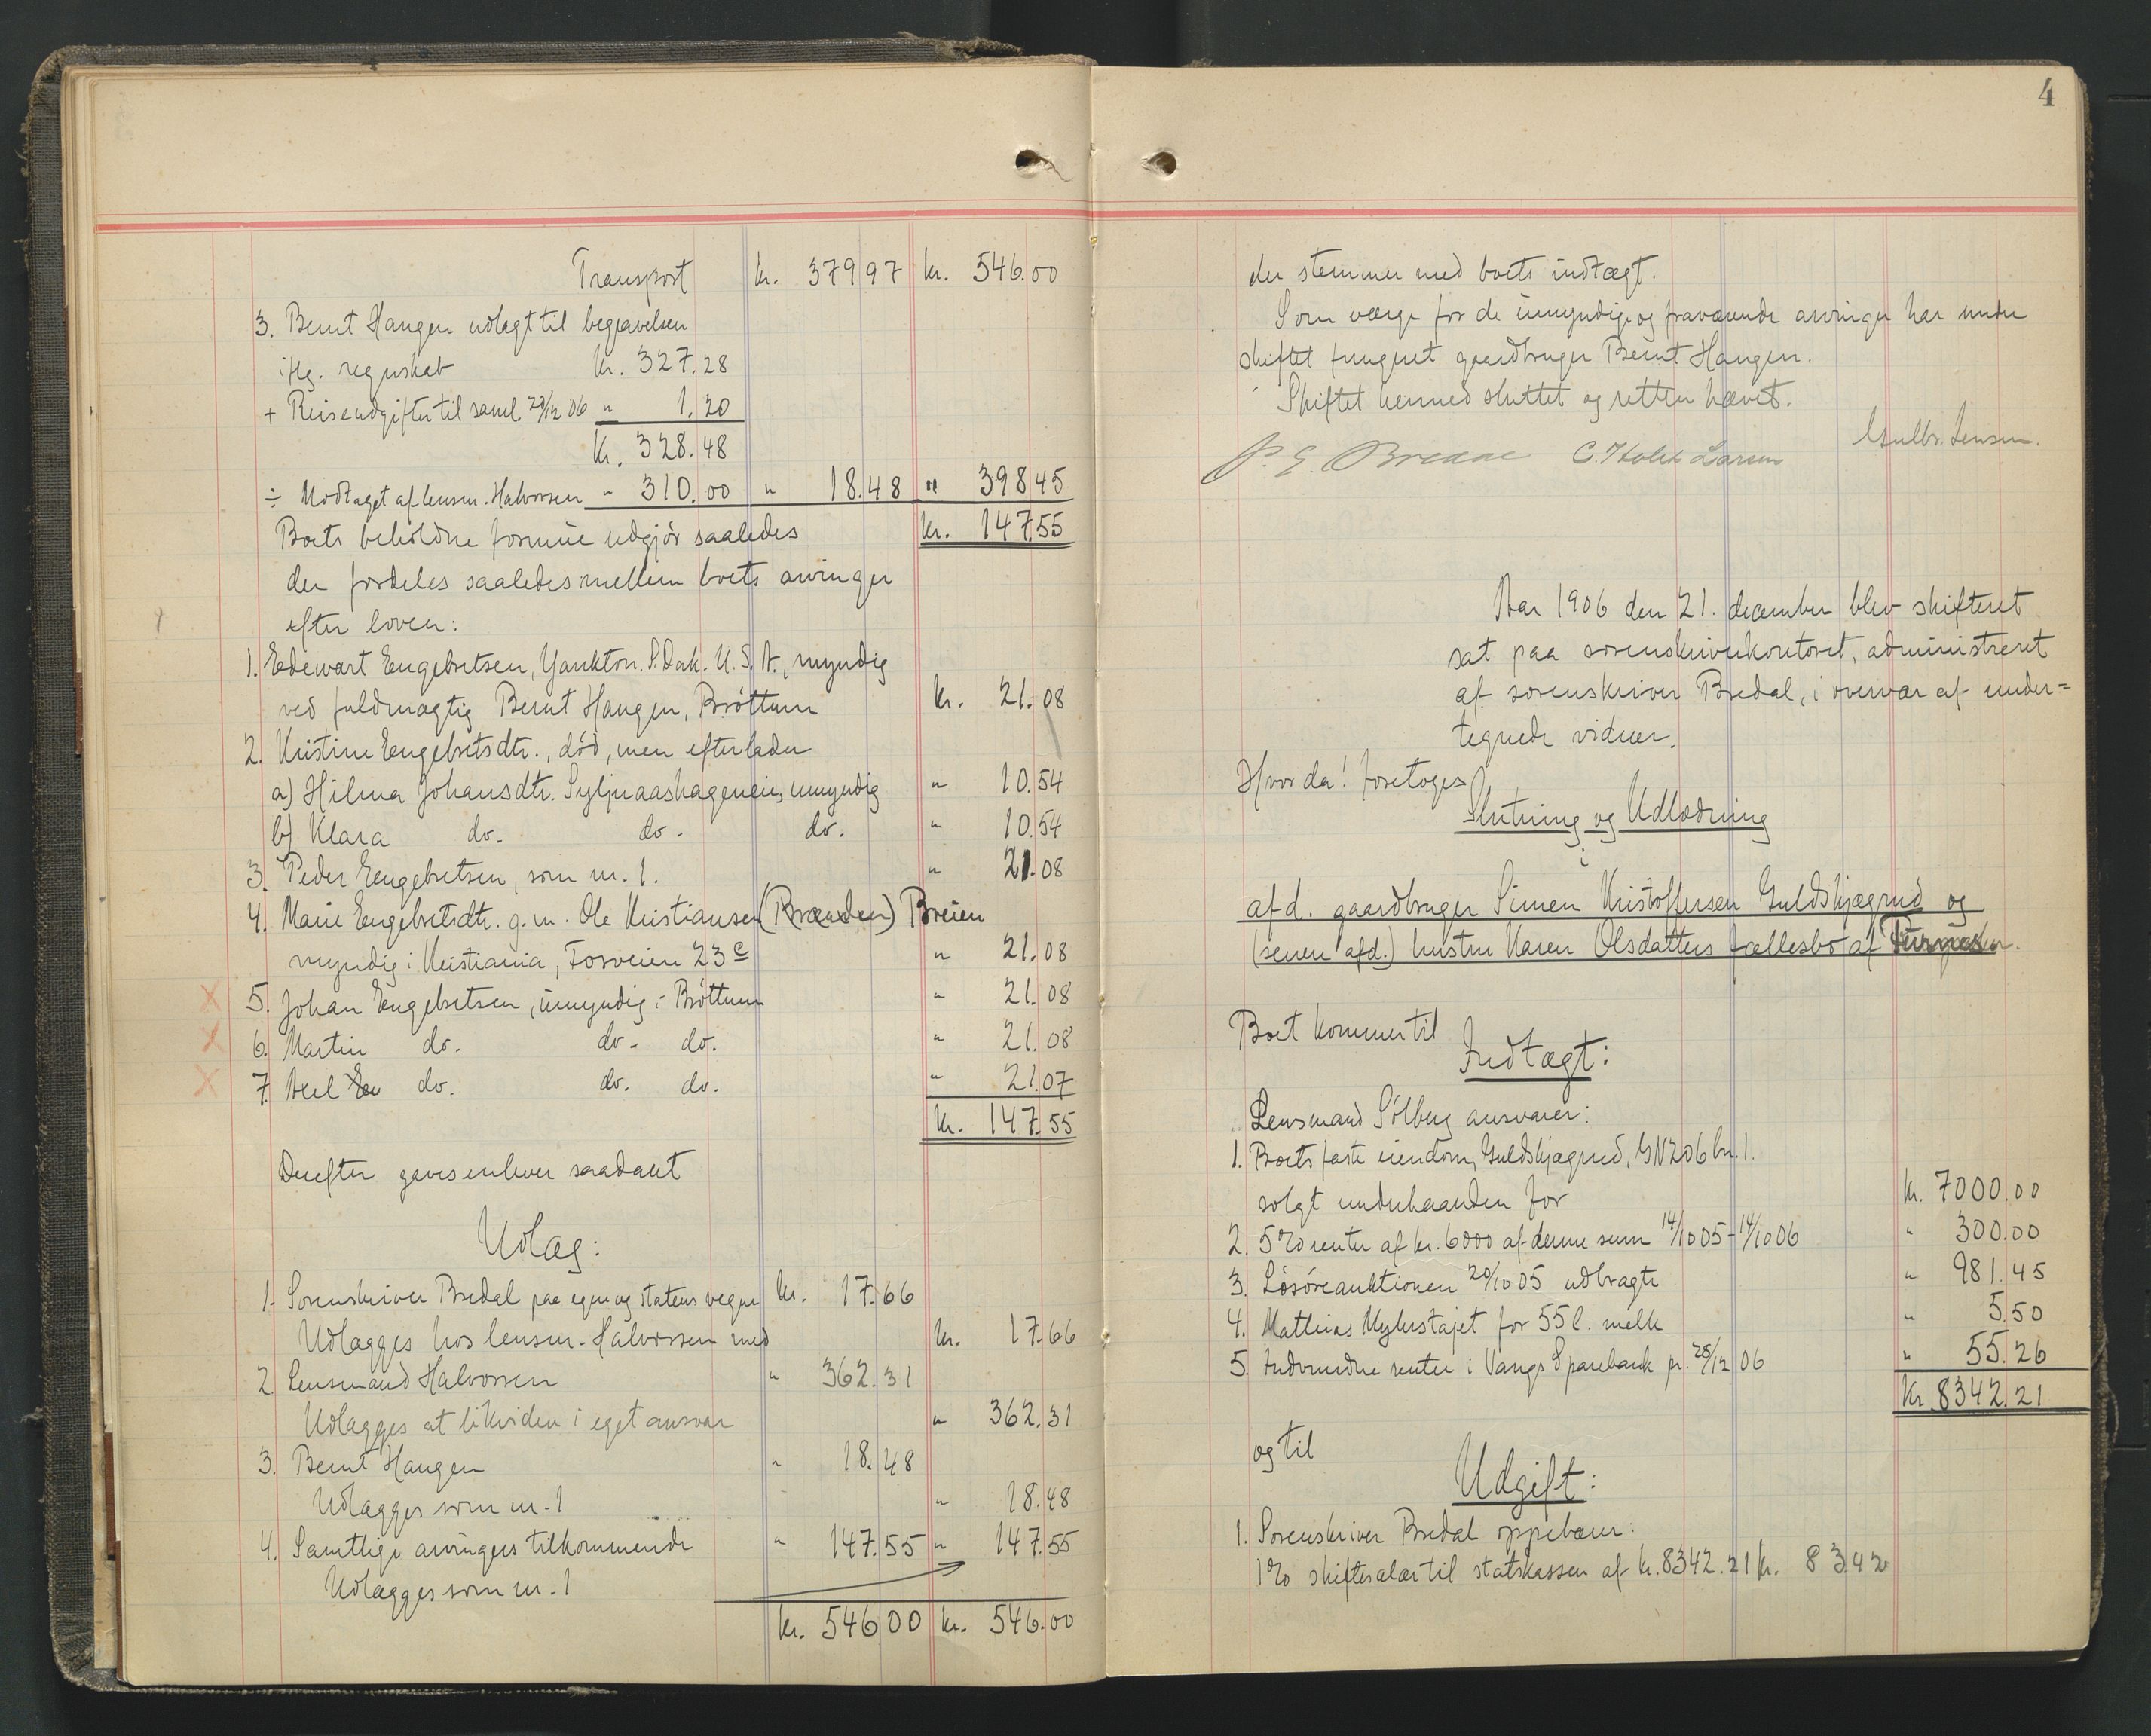 Transport kr. 379 97 kr. 546.00
3. Bernt Haugen udlagt til begravelsen
iflg. regnskab kr. 327.28
+ Reiseudgifter til saml 29/12 06 " 1.20
kr. 328.48
÷ Modtaget af lensm. Halvorsen " 310.00 " 18.48 " 398 45
Boets beholdne formue udgjør saaledes kr. 147.55
der fordeles saaledes mellem boets arvinger
efter loven:
1. Edewart Engebretsen, Yankton. S. Dak. U.S.A., myndig
ved fuldmægtig Bernt Haugen, Brøttum kr. 21.08
2. Kristine Engebretsdtr., død, men efterlader
a) Hilma Johansdtr. umyndig " 10.54
b) Klara do. do. do. " 10.54
3. Peder Engebretsen, som nr. 1. " 21.08
4. Marie Engebretsdtr. g.m. Ole Kristiansen (Brænden) Breien
myndig i Kristiania, Fosveien 23 c " 21.08
5. Johan Engebretsen, umyndig i Brøttum " 21.08
6. Martin do. do. do. " 21.08
7. Axel En do. do. do. " 21.07
kr. 147.55
Derefter gaves enhver saadant
Udlæg:
1. Sorenskriver Bredal paa egne og statens vegne kr. 17.66
Udlægges hos lensm. Halvorsen med kr. 17.66
2. Lensmand Halvorsen " 362.31
Udlægges at likvidere i eget ansvar " 362.31
3. Bernt Haugen " 18.48
Udlægges som nr. 1 " 18.48
4. Samtlige arvingers tilkommende " 147.55 " 147.55
Udlægges som nr. 1
kr. 546 00 kr. 546.00
4
der stemmer med boets indtægt.
Som værge for de umyndige og fraværende arvinger har under
skiftet fungeret gaardbruger Bernt Haugen.
Skiftet hermed sluttet og retten hævet.
P. E. Bredal C. Holst Larsen Gulbr. Jensen.
Aar 1906 den 21. december blev skifteret
sat paa sorenskriverkontoret, administreret
af sorenskriver Bredal, i overvær af under=
tegnede vidner.
Hvorda! foretoges
Slutning og Udlodning
i
afd. gaardbruger Simen Kristoffersen Guldskjægrud og
(senere afd.) hustru Karen Olsdatters fællesbo af Furnes.
Boet kommer til
Indtægt:
Lensmand Sølberg ansvarer:
1. Boets faste eiendom, Guldskjægrud, GN 206 bn. 1.
solgt underhaanden for kr. 7000.00
2. 5% renter af kr. 6000 af denne sum 14/10 05 - 14/10 06 " 300.00
3. Løsøreauktionen 20/10 05 udbragte " 981.45
4. Mathias for 55 l. melk " 5.50
5. Indvundne renter i Vangs Sparebank pr. 28/12 06 " 55.26
kr. 8342.21
og til
Udgift:
1. Sorenskriver Bredal oppebærer:
1% skiftesalær til statskassen af kr. 8342.21 kr. 83.42